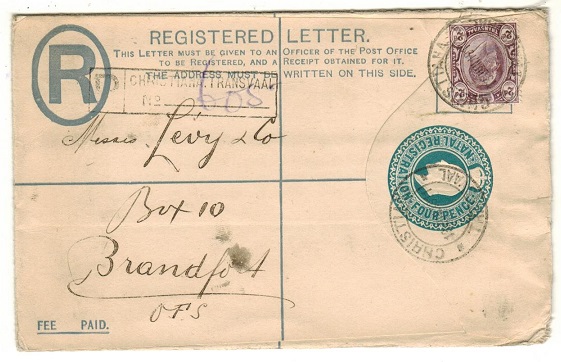 REGISTERED LETTER.
THIS LETTER MUST BE GIVEN TO AN OFFICER OF THE POST OFFICE
TO BE REGISTERED, AND A RECEIPT OBTAINED FOR IT.
THE ADDRESS MUST BE WRITTEN ON THIS SIDE.
R
R
CHRISTIANA. TRANSVAAL
No
605
Messrs Lévy & Co
Box 10
Brandfort
OFS
REGISTRATION FOUR PENCE
CHRISTI
FEE PAID.